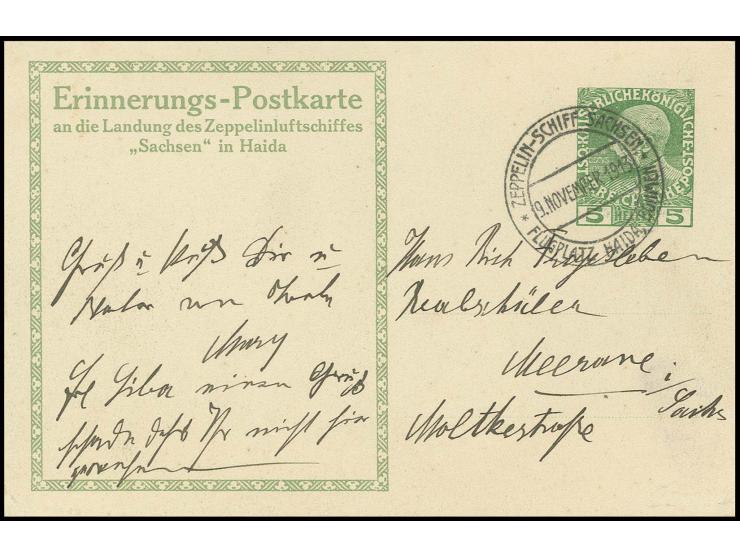 Erinnerungs-Postkarte
an die Landung des Zeppelinluftschiffes
„Sachsen“ in Haida
Gruß u Kuß Dir u
Vater von
Mary
einen Gruß
schade daß Ihr nicht hier
gewesen
* ZEPPELIN-SCHIFF „SACHSEN“ *
9. NOVEMBER 1913
FLUGPLATZ HAIDA
KAISERLICHE KÖNIGLICHE
ÖSTERREICHISCHE POST
5 HELLER 5
Hans
Realschüler
Meerane i/
Sachs
Moltkestraße